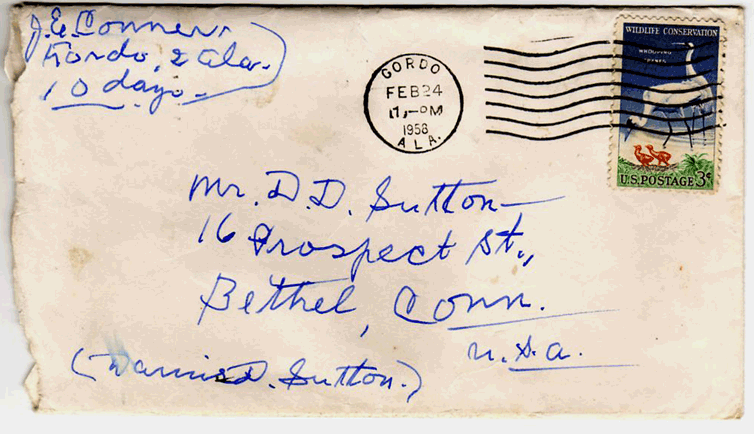 J.E. Conner,
Gordo, 2 Ala.
10 days.
GORDO
FEB 24
PM
1958
ALA.
WILDLIFE CONSERVATION
WHOOPING
CRANES
U.S. POSTAGE 3¢
Mr. D.D. Sutton
16 Prospect St.,
Bethel, Conn.
U.S.A.
(D. Sutton.)